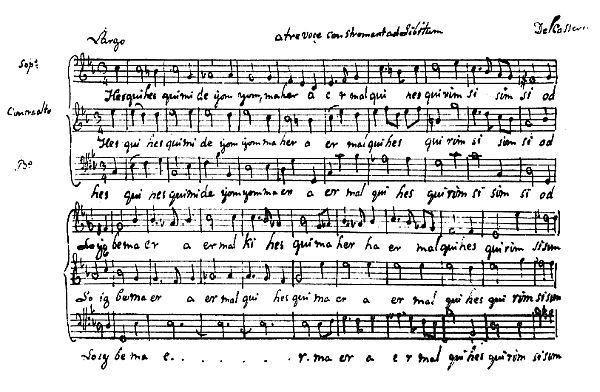 Largo a tre voçe con stromentad libitum
Sop.º
Hesqui hes qui mi de iyom yom, maher a e r mal qui hes qui rim si sim si od
Contraalto
Hes qui hes qui mi de iyom yom ma her a er mal qui hes qui rim si sim si od
hes qui hes qui mi de iyom yom ma er a er mal qui hes qui rim si sim si od
be ma er a er mal ki hes qui ma her ha er mal qui hes qui rim si sim
So ig be ma er a er mal qui hes qui ma er a er mal qui hes qui rim si sim
So ig be ma e . . . . . . r. ma er a e r mal qui hes qui rim si sim